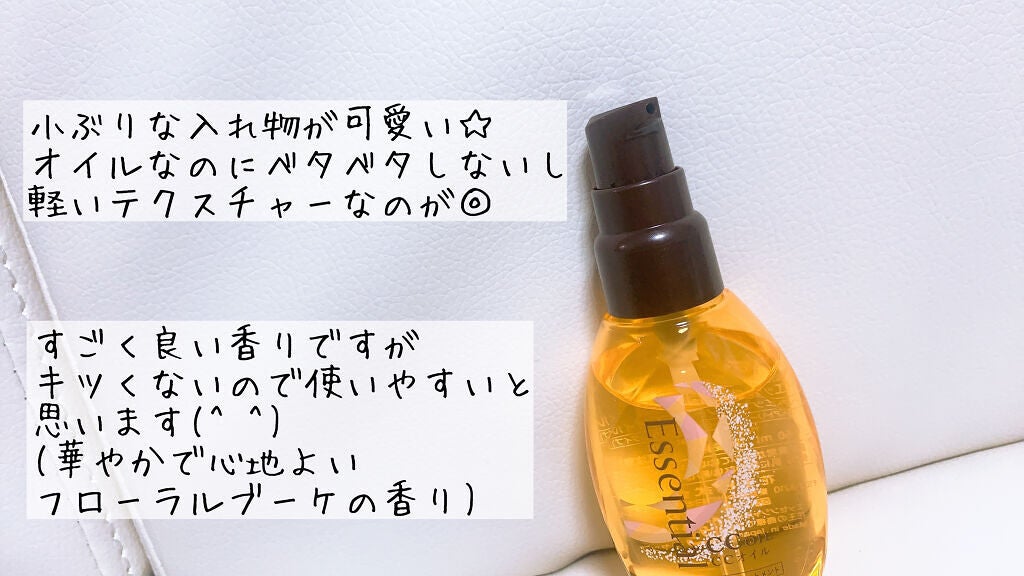 小ぶりな入れ物が可愛い☆
オイルなのにベタベタしないし
軽いテクスチャーなのが◎
すごく良い香りですが
キツくないので使いやすいと
思います(^ ^)
(華やかで心地よい
フローラルブーケの香り)
Essential
CC OIL
CCオイル